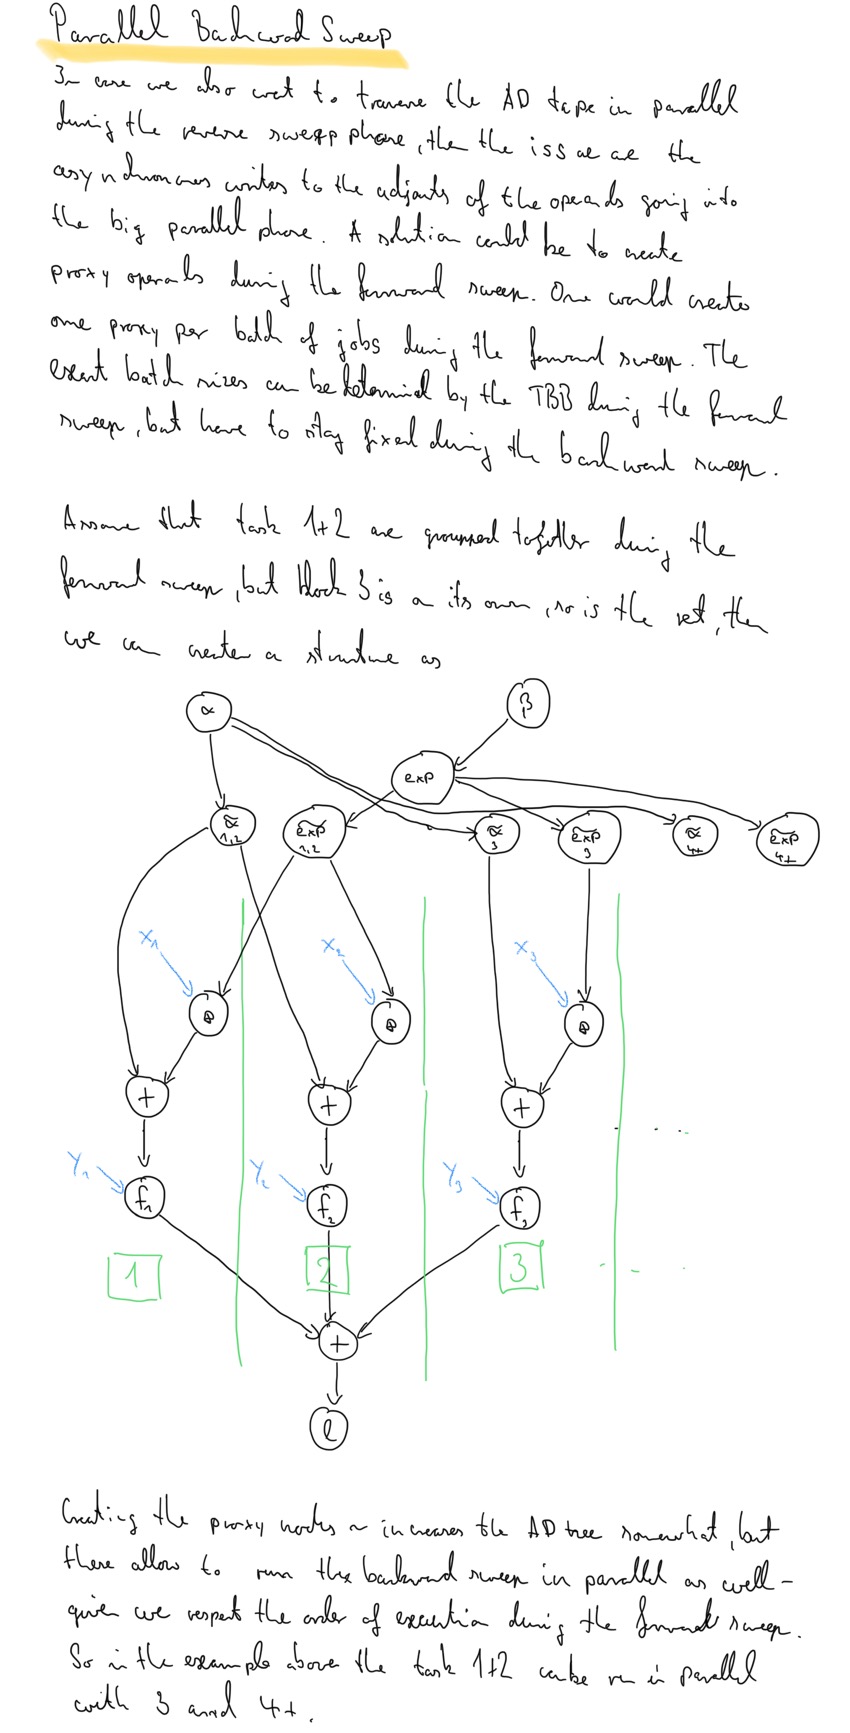 Parallel Backward Sweep
In case we also want to traverse the AD tape in parallel
during the reverse sweep phase, then the issue are the
asynchronous writes to the adjoints of the operands going into
the big parallel phase. A solution could be to create
proxy operands during the forward sweep. One would create
one proxy per batch of jobs during the forward sweep. The
exact batch sizes can be determined by the TBB during the forward
sweep, but have to stay fixed during the backward sweep.
Assume that task 1+2 are groupped together during the
forward sweep, but block 3 is on its own, so is the rest, then
we can create a structure as
α
β
exp
α̃ 1,2
exp̃ 1,2
α̃ 3
exp̃ 3
α̃ 4+
exp̃ 4+
x₁
x₂
x₃
+
+
+
....
y₁
y₂
y₃
f₁
f₂
f₃
1
2
3
+
l
Creating the proxy nodes increases the AD tree somewhat, but
these allow to run the backward sweep in parallel as well -
given we respect the order of execution during the forward sweep.
So in the example above the task 1+2 can be run in parallel
with 3 and 4+.